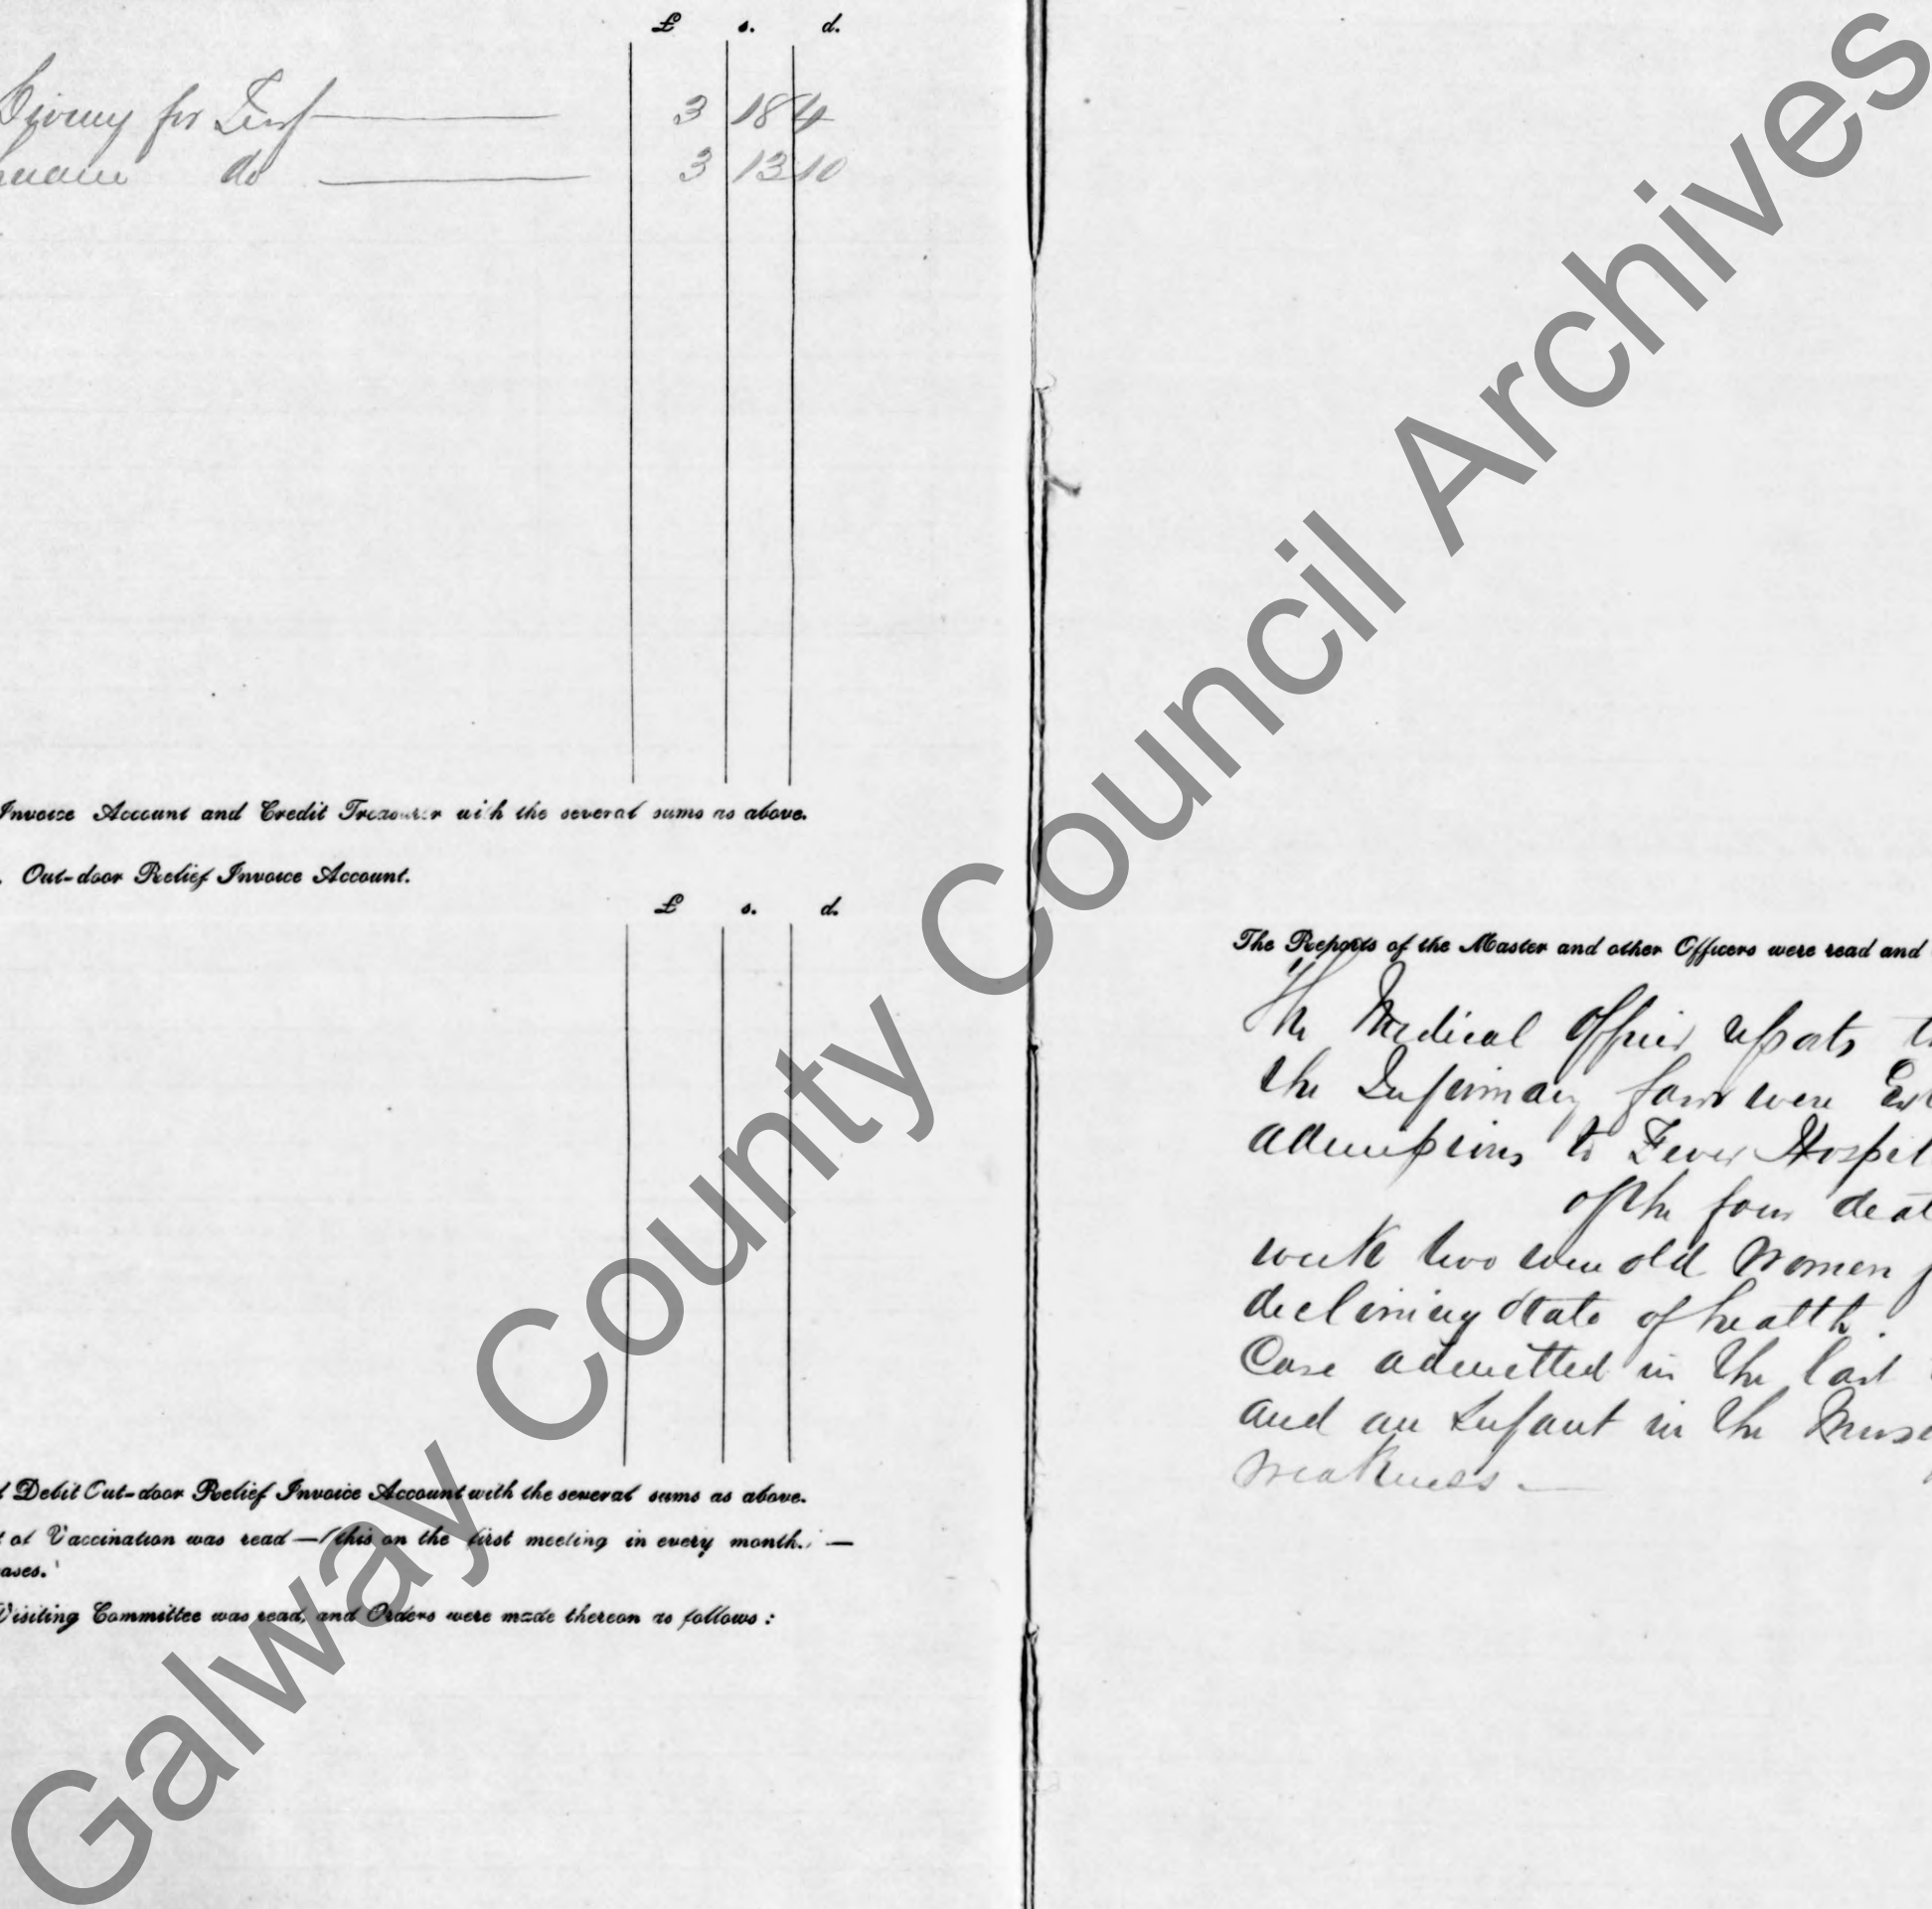 £ s. d.
for Turf 3 18 4
do 3 13 10
Invoice Account and Credit Treasurer with the several sums as above.
Out-door Relief Invoice Account.
£ s. d.
Debit Out-door Relief Invoice Account with the several sums as above.
of Vaccination was read—(this on the first meeting in every month.)—
ases.
Visiting Committee was read, and Orders were made thereon as follows:
The Reports of the Master and other Officers were read and
The Medical Officer reports
the Infirmary four were
admissions to Fever Hospit
of the four deat
week two were old women
declining state of health.
Case admitted in the last
and an Infant in the
weakness.—
Galway County Council Archives